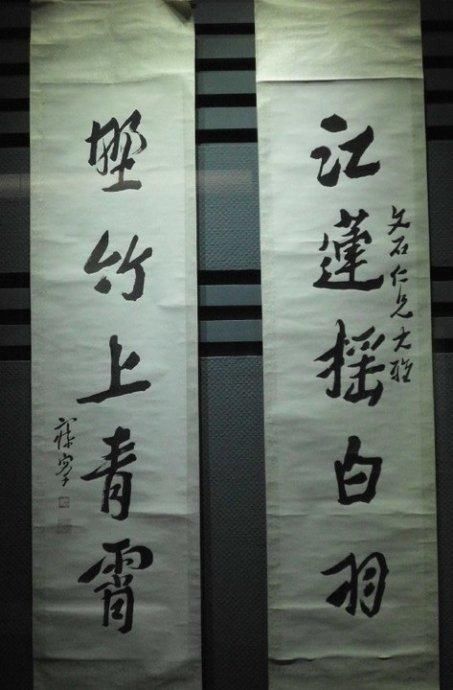 江蓮搖白羽
文石仁兄大雅
野竹上青霄